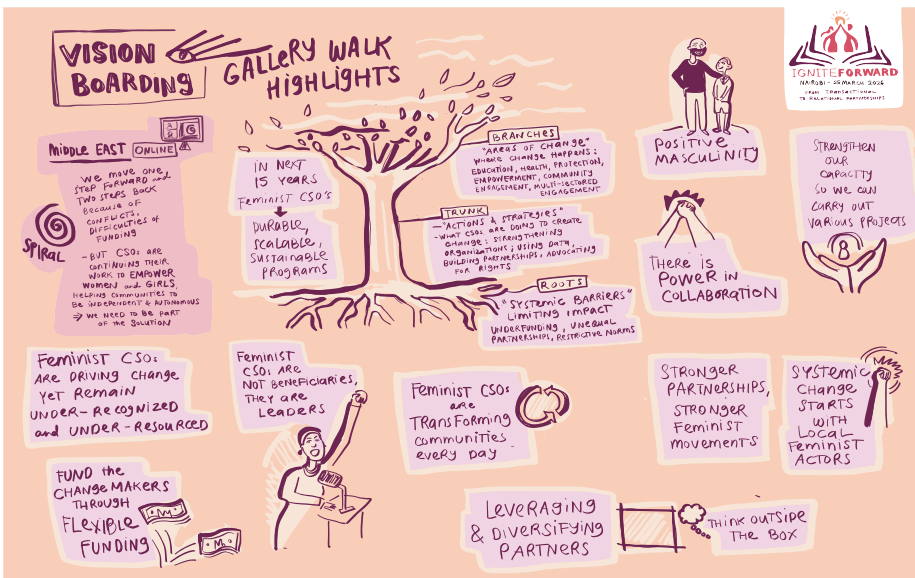 VISION
BOARDING
GALLERY WALK
HIGHLIGHTS
IGNITEFORWARD
NAIROBI - 25 MARCH 2026
FROM TRANSACTIONAL
TO RELATIONAL PARTNERSHIPS
MIDDLE EAST ONLINE
WE MOVE ONE
STEP FORWARD and
TWO STEPS BACK
BECAUSE OF
CONFLICTS,
DIFFICULTIES OF
FUNDING
SPIRAL
- BUT CSOs ARE
CONTINUING THEIR
WORK TO EMPOWER
WOMEN and GIRLS,
HELPING COMMUNITIES TO
BE INDEPENDENT & AUTONOMOUS
→ WE NEED TO BE PART
OF THE SOLUTION
IN NEXT
15 YEARS
FEMINIST CSO'S
DURABLE,
SCALABLE,
SUSTAINABLE
PROGRAMS
BRANCHES
"AREAS OF CHANGE"
WHERE CHANGE HAPPENS:
EDUCATION, HEALTH, PROTECTION,
EMPOWERMENT, COMMUNITY
ENGAGEMENT, MULTI-SECTORED
ENGAGEMENT
TRUNK
- "ACTIONS & STRATEGIES"
- WHAT CSOs ARE DOING TO CREATE
CHANGE: STRENGTHENING
ORGANIZATIONS; USING DATA,
BUILDING PARTNERSHIPS, ADVOCATING
FOR RIGHTS
ROOTS
"SYSTEMIC BARRIERS"
LIMITING IMPACT
UNDERFUNDING, UNEQUAL
PARTNERSHIPS, RESTRICTIVE NORMS
POSITIVE
MASCULINITY
THERE IS
POWER IN
COLLABORATION
STRENGTHEN
OUR
CAPACITY
SO WE CAN
CARRY OUT
VARIOUS PROJECTS
FEMINIST CSOs
ARE DRIVING CHANGE
YET REMAIN
UNDER-RECOGNIZED
and UNDER-RESOURCED
FEMINIST
CSOs ARE
NOT BENEFICIARIES,
THEY ARE
LEADERS
FEMINIST CSOs
are
TRANSFORMING
COMMUNITIES
EVERY DAY
STRONGER
PARTNERSHIPS,
STRONGER
FEMINIST
MOVEMENTS
SYSTEMIC
CHANGE
STARTS
WITH
LOCAL
FEMINIST
ACTORS
FUND the
CHANGEMAKERS
THROUGH
FLEXIBLE
FUNDING
LEVERAGING
& DIVERSIFYING
PARTNERS
THINK OUTSIDE
THE BOX